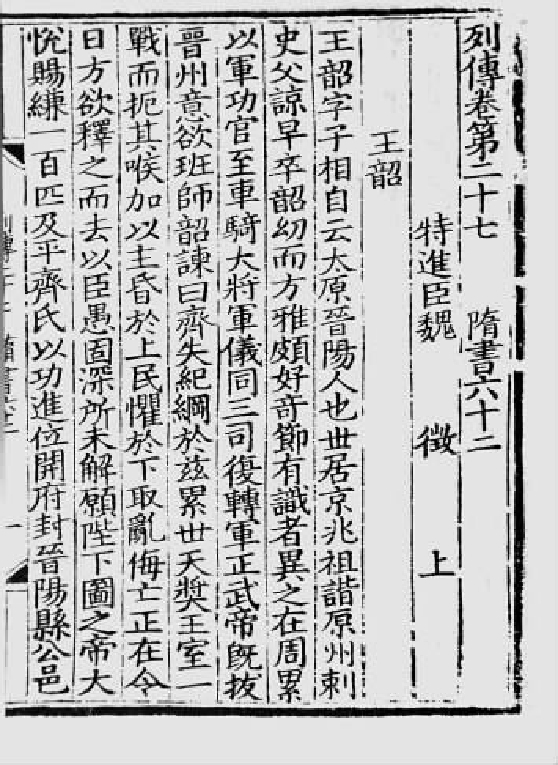 列傳卷第二十七 隋書六十二
特進臣魏 徵 上
王韶
王韶字子相自云太原晉陽人也世居京兆祖諧原州刺
史父諒早卒韶幼而方雅頗好奇節有識者異之在周累
以軍功官至車騎大將軍儀同三司復轉軍正武帝旣拔
晉州意欲班師韶諫曰齊失紀綱於兹累世天奬王室一
戰而扼其喉加以主昏於上民懼於下取亂侮亡正在今
日方欲釋之而去以臣愚固深所未解願陛下圖之帝大
悅賜縑一百匹及平齊氏以功進位開府封晉陽縣公邑